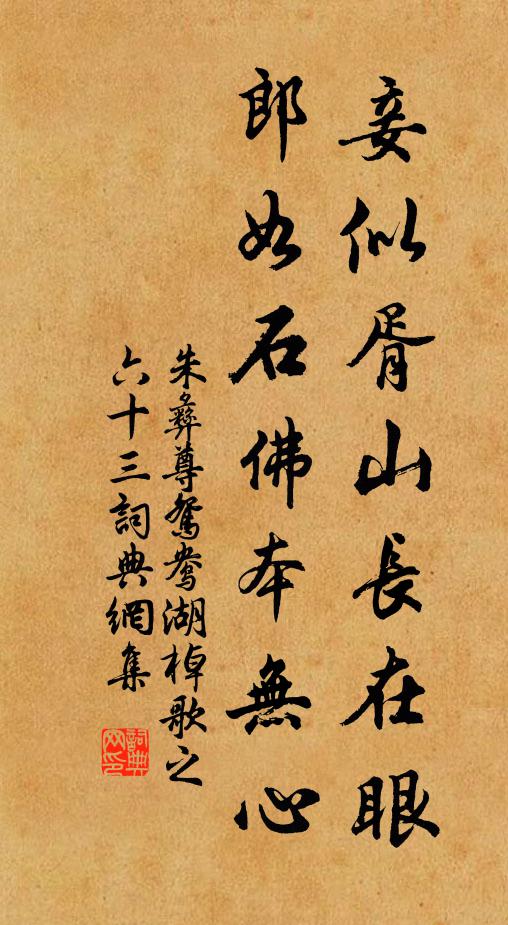 妾似胥山長在眼
郎如石佛本無心
朱彝尊鴛鴦湖棹歌之
六十三詞典網集
詞典
网印